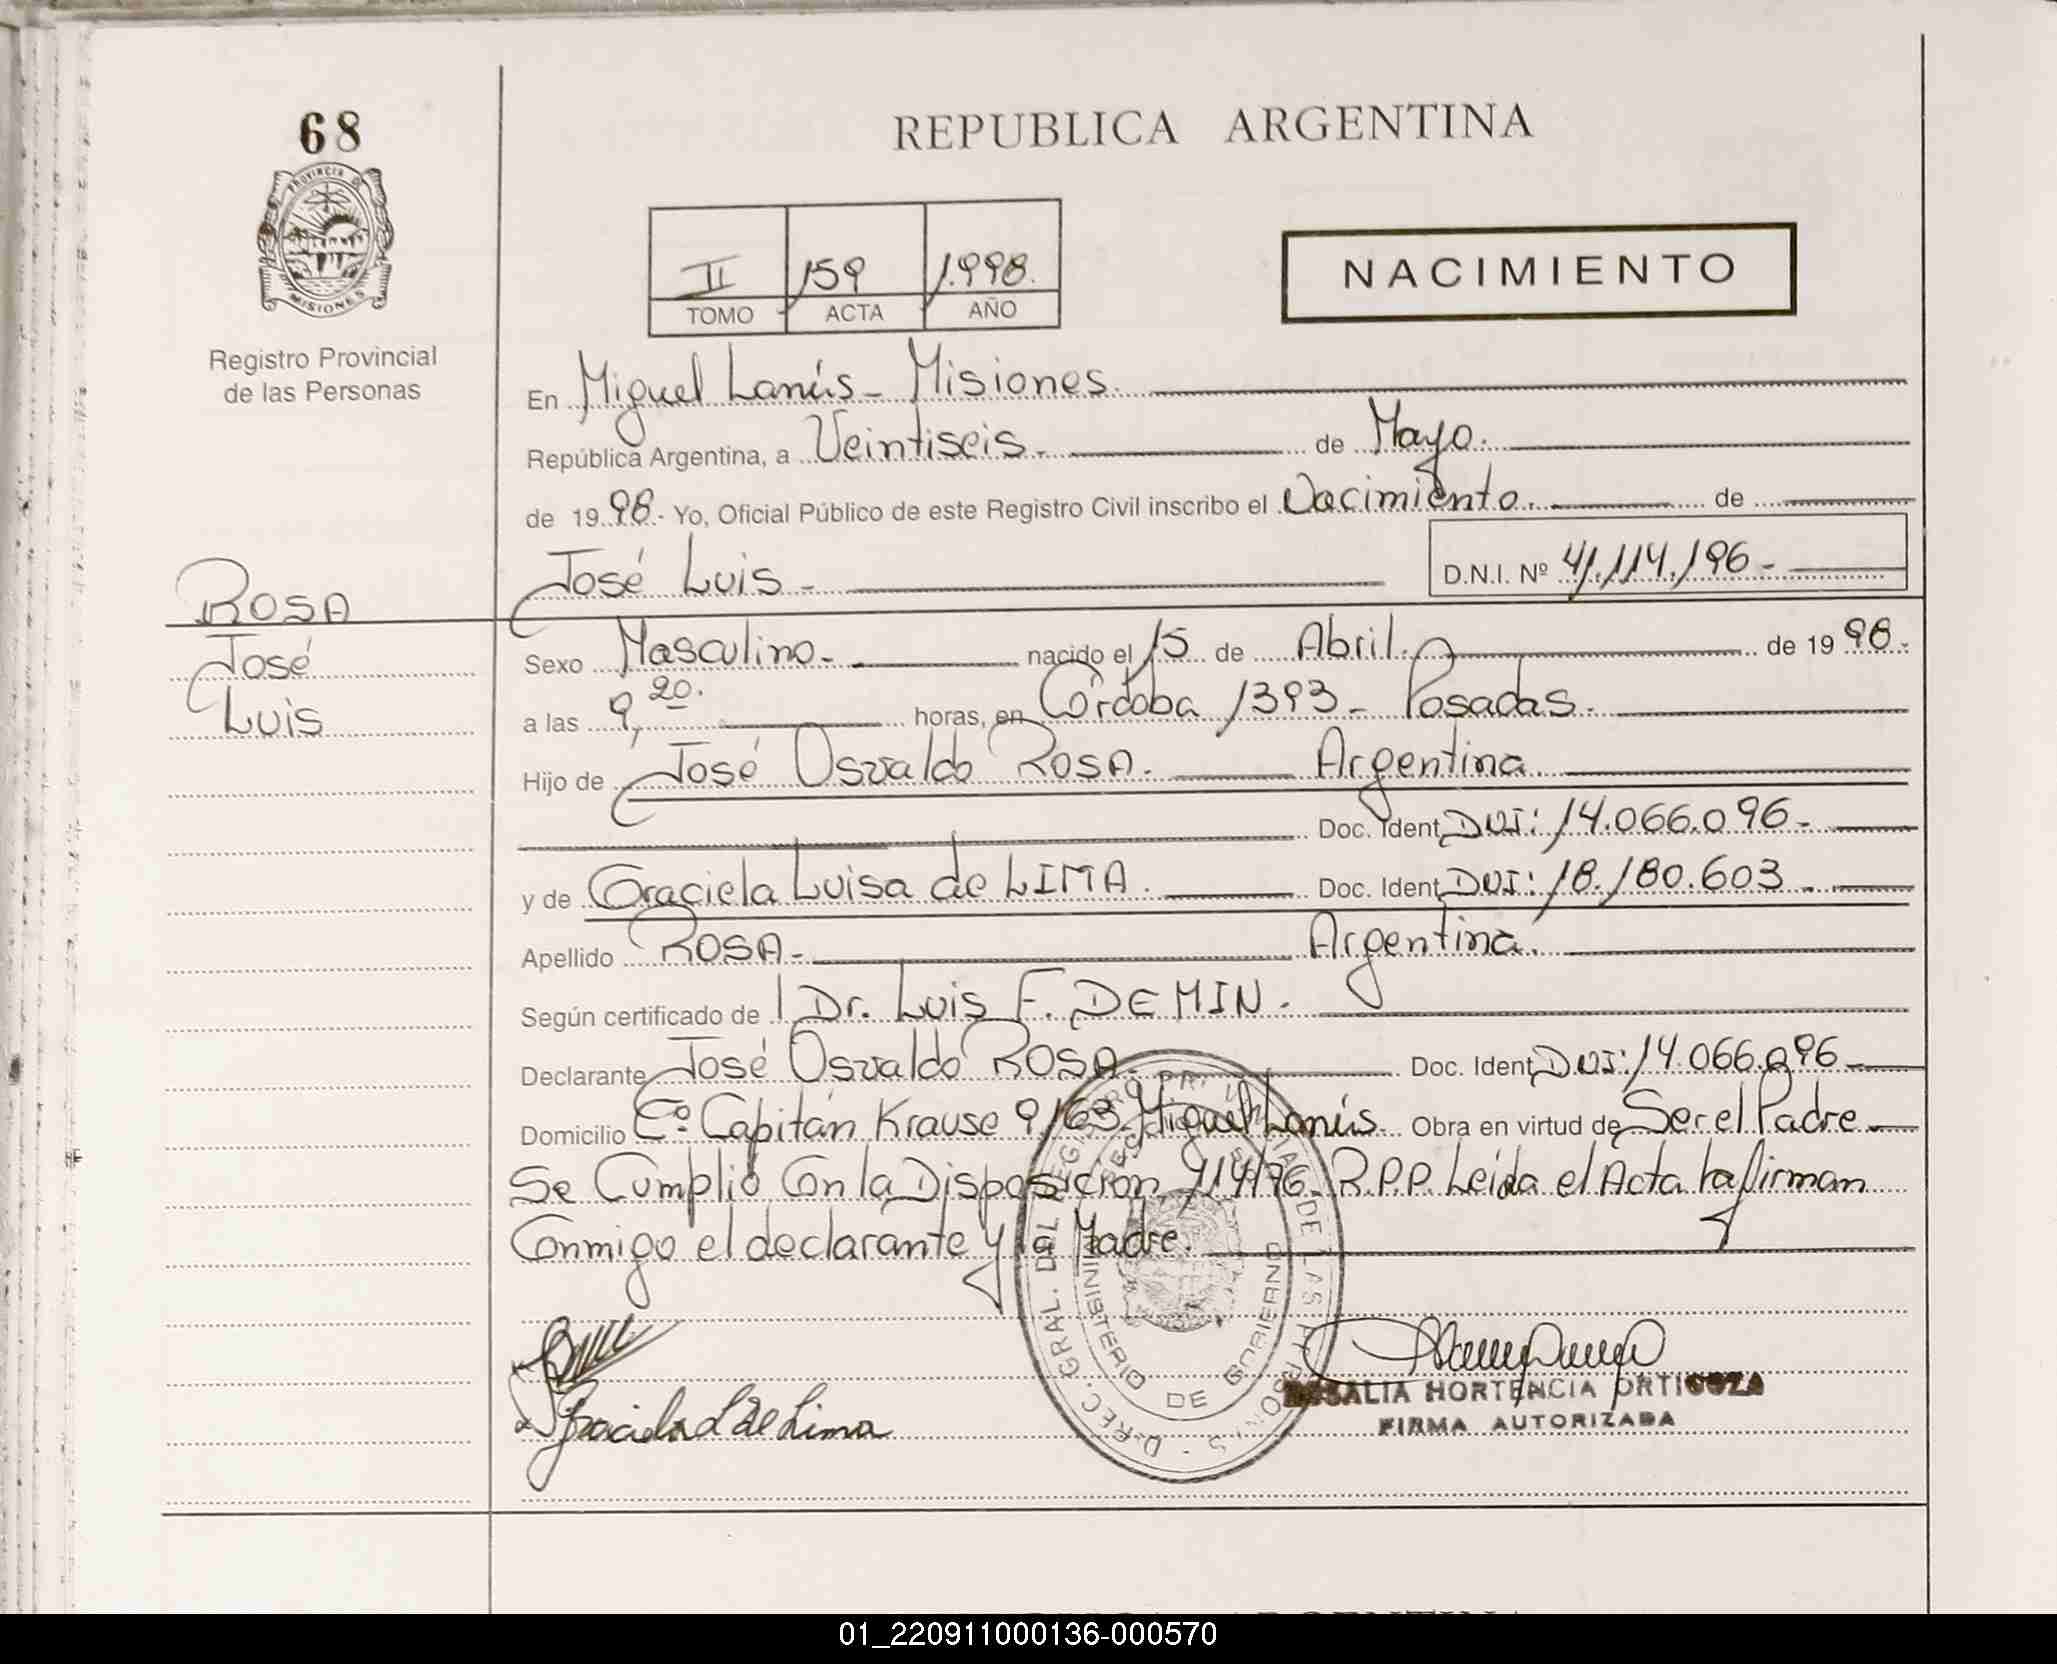 68
PROVINCIA D
MISIONES
Registro Provincial
de las Personas
REPUBLICA ARGENTINA
II 159 1.998.
TOMO ACTA AÑO
NACIMIENTO
En Miguel Lanús - Misiones.
República Argentina, a Veintiseis. de Mayo.
de 19 98.- Yo, Oficial Público de este Registro Civil inscribo el Nacimiento. de
José Luis - D.N.I. Nº 41.114.196-
ROSA
José
Luis
Sexo Masculino. nacido el 15 de Abril. de 19 98.-
a las 9,20. horas, en Córdoba 1393 - Posadas.
Hijo de José Osvaldo ROSA. Argentina
Doc. Ident. DNI: 14.066.096-
y de Graciela Luisa de LIMA. Doc. Ident. DNI: 18.180.603.
Apellido ROSA. Argentina.
Según certificado de Dr. Luis F. DEMIN.
Declarante José Osvaldo ROSA. Doc. Ident. DNI: 14.066.096-
Domicilio Cº Capitán Krause 9163. Miguel Lanús. Obra en virtud de Ser el Padre
Se Cumplió Con la Disposición 114/96. R.P.P. Leída el Acta la firman
Conmigo el declarante y la Madre.
D-REC. GRAL. DEL REGISTRO PROVINCIAL DE LAS PERSONAS
MINISTERIO DE GOBIERNO
Graciela L de Lima
ROSALIA HORTENCIA ORTIGOZA
FIRMA AUTORIZADA
01_220911000136-000570